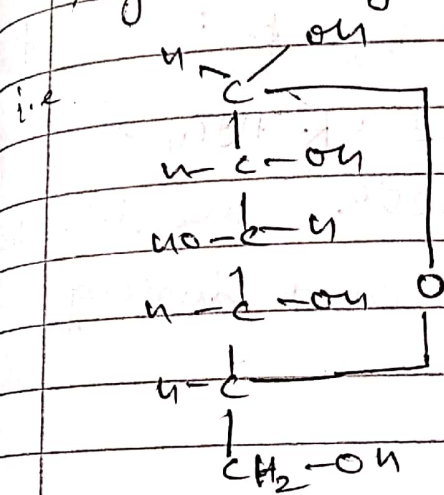 H OH
i.e C
H-C-OH
HO-C-H
H-C-OH O
H-C
CH₂-OH